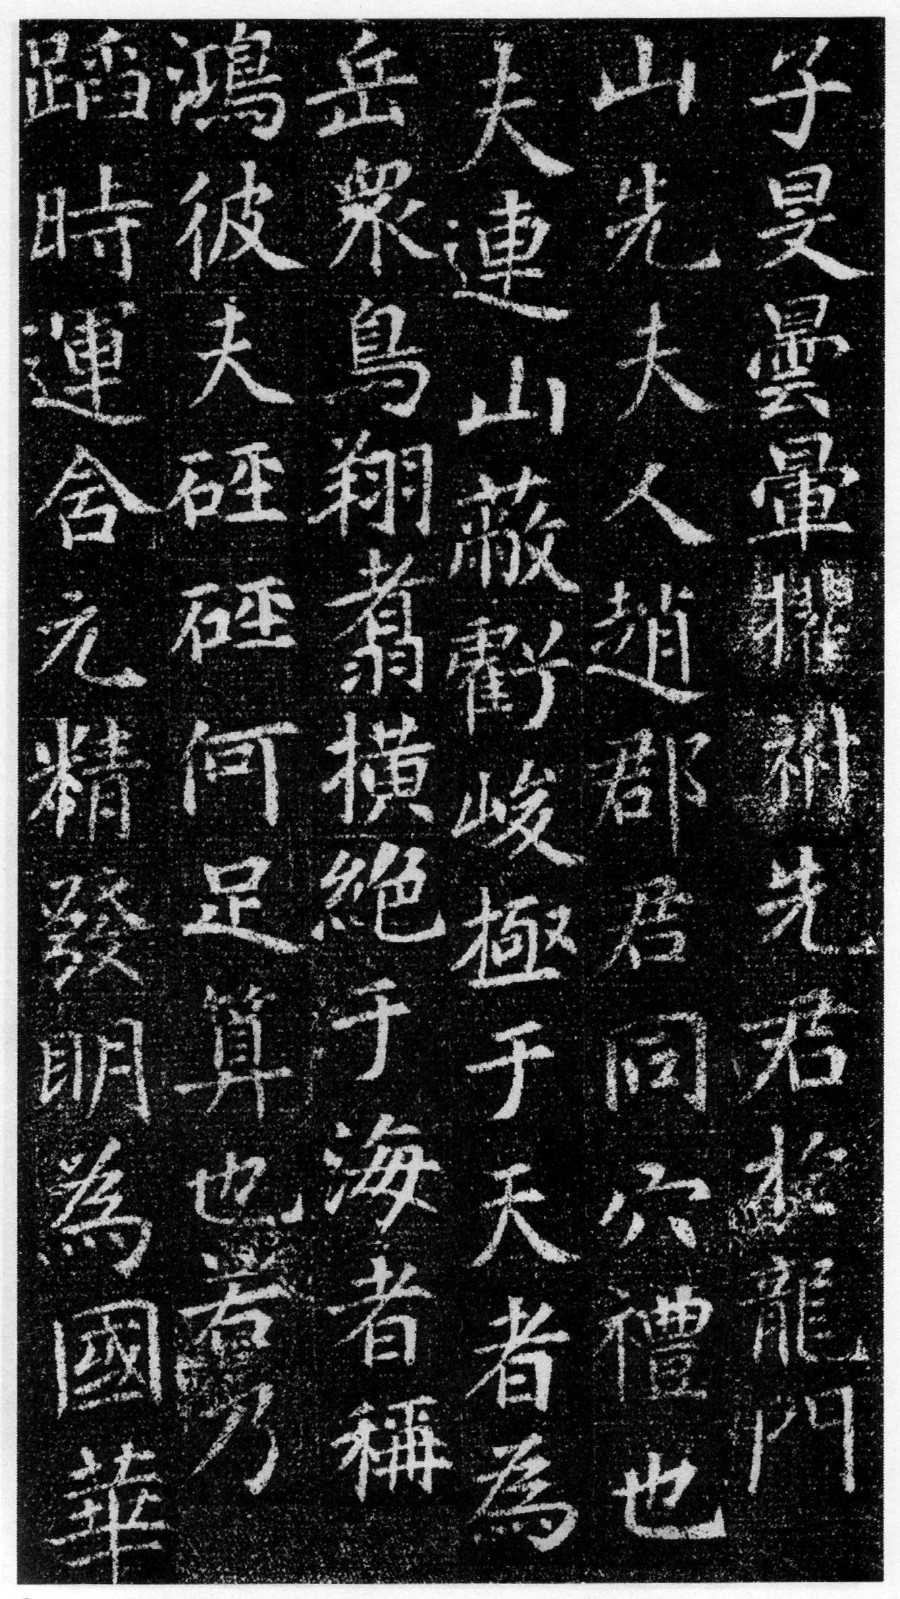 子旻曇暈櫂祔先君於龍門
山先夫人趙郡君同穴禮也
夫連山蔽虧峻極于天者為
岳衆鳥翔翥橫絶于海者稱
鴻彼夫硜硜何足算也若乃
蹈時運含元精發明為國華